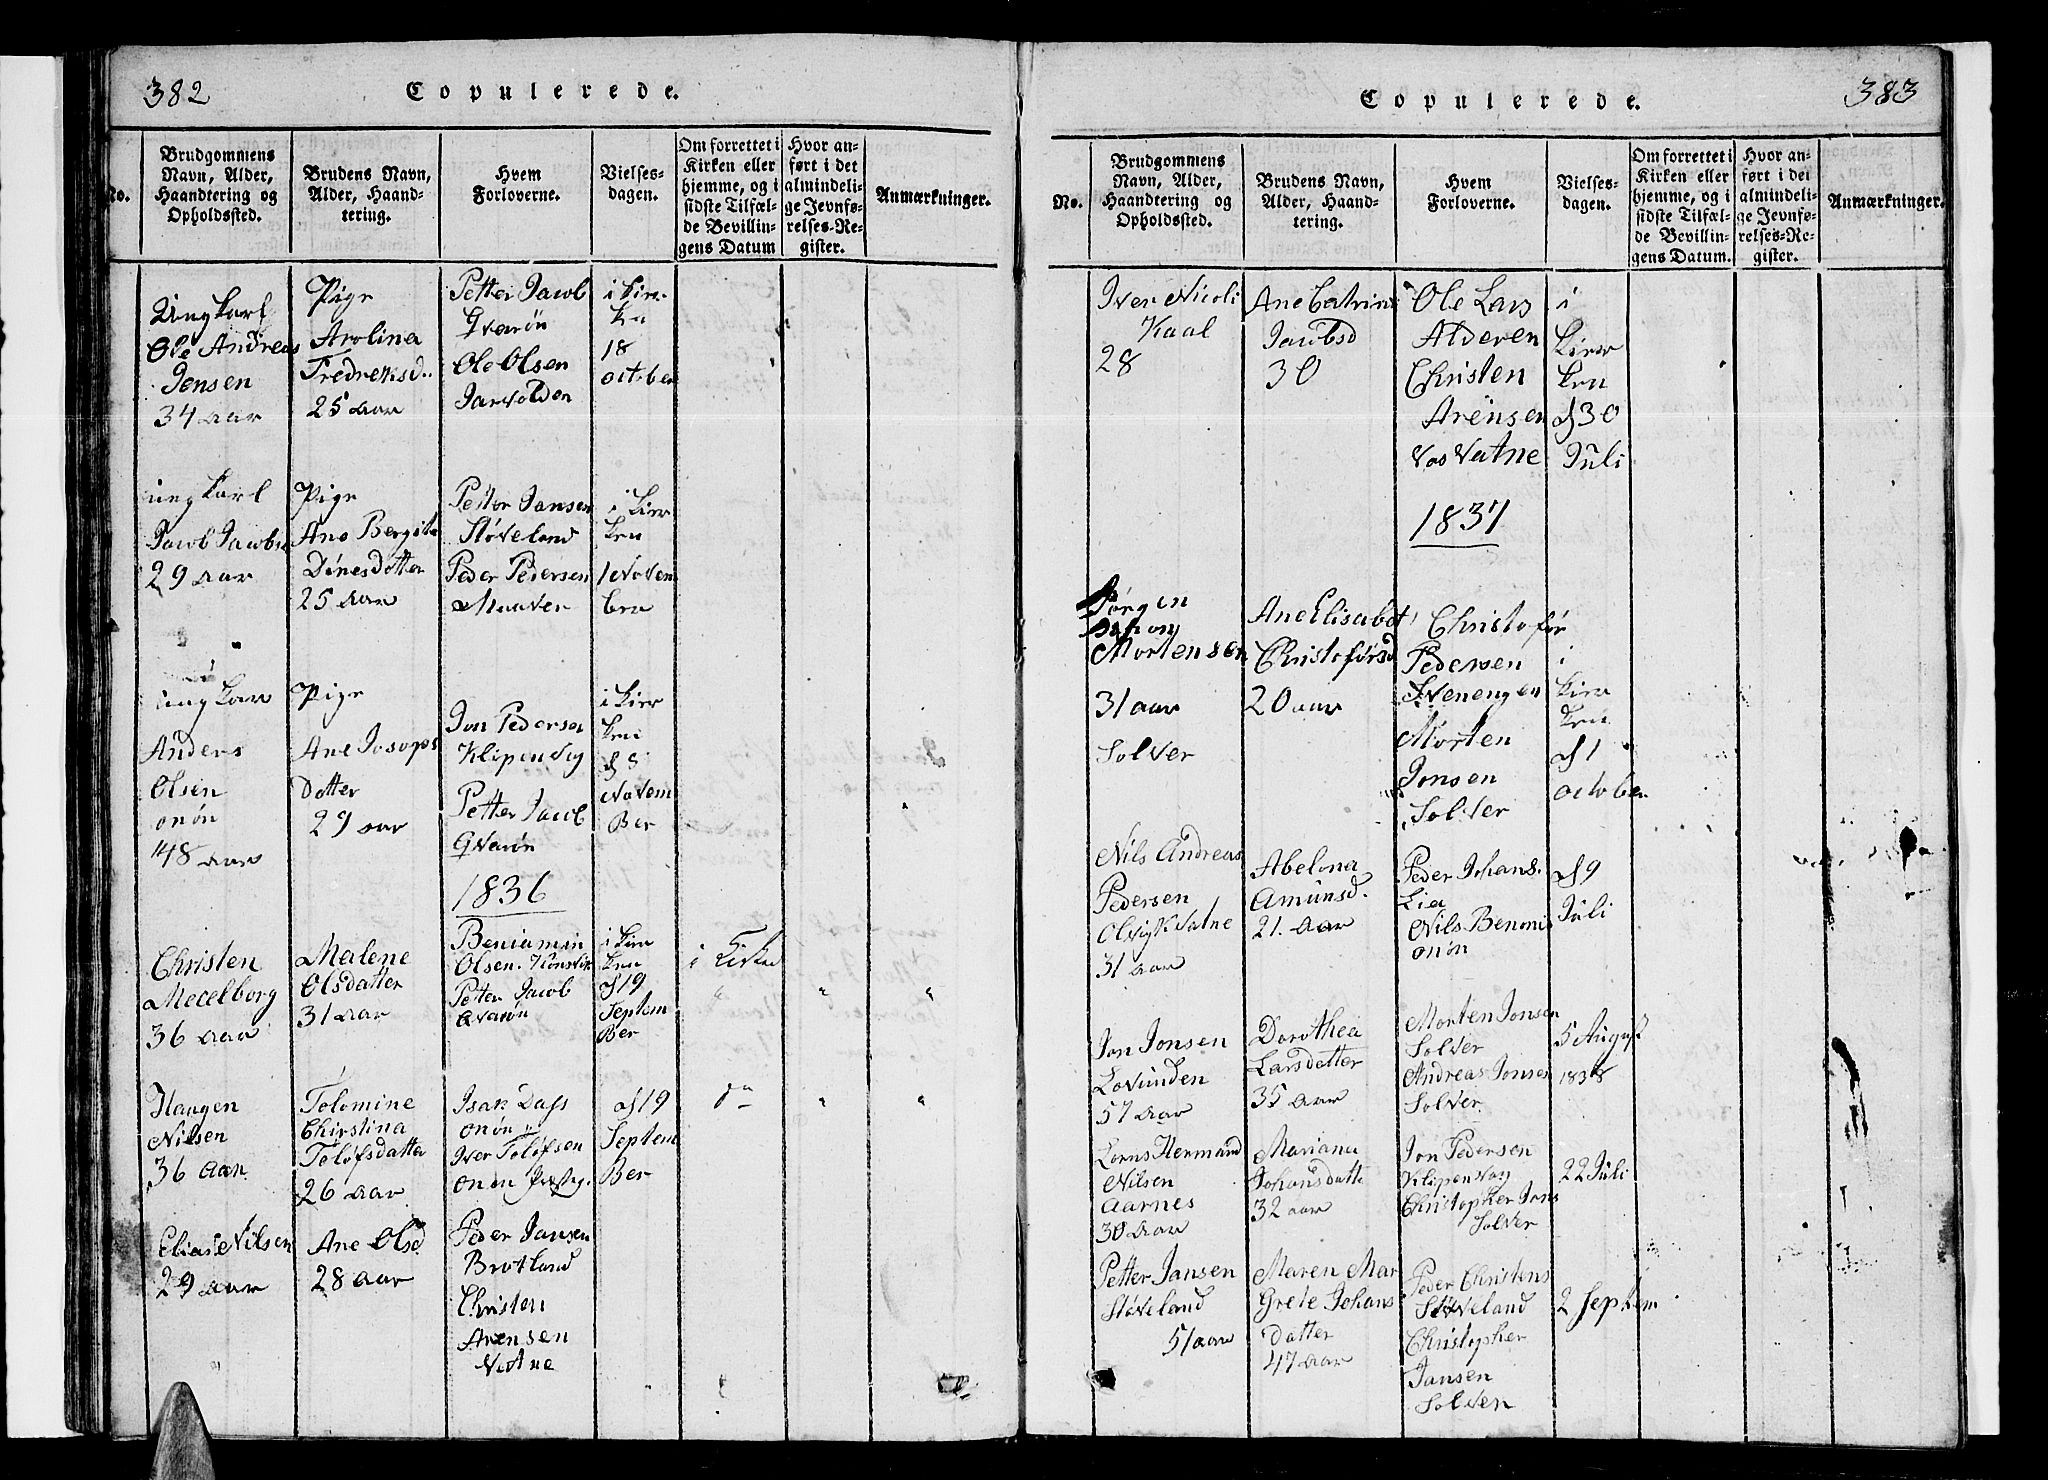 382
Copulerede.
No.
Brudgommens
Navn, Alder,
Haandtering og
Opholdssted.
Brudens Navn,
Alder, Haand-
tering.
Hvem
Forloverne.
Vielses-
dagen.
Om forrettet i
Kirken eller
hjemme, og i
sidste Tilfæl-
de Bevillin-
gens Datum
Hvor an-
ført i det
almindeli-
ge Jevnfø-
relses-Re-
gister.
Anmærkninger.
Ungkarl
Ole Andreas
Jensen
34 aar
Pige
Arolina
Fredreksd..
25 aar
Petter Jacob
Qvarøn
Ole Olsen
Jarvolden
i kir-
ken
18
october
ungkarl
Jacob Jacobs
29 aar
Pige
Ane Bergita
Dinesdatter
25 aar
Petter Jansen
Støveland
Peder Pedersen
i Kirr
ken
1 Novem
bru
ungkar
Anders
Olsen
onøn
48 aar
Pige
Ane Josops
Datter
29 aar
Jon Pedersen
Klipenvig
Petter Jacob
Qvarøn
i kirr
ken
d 8
Novem
Ber
1836
Christen
Mecelborg
36 aar
Malene
Olsdatter
31 aar
Beniamin
Olsen. Konsvik
Peter Jacob
Qvarøn
i kirr
ken
d 19
Septem
Ber
i Kirken
" " "
Haagen
Nilsen
36 aar
Tolomine
Chirstina
Tolofsdatter
26 aar
Isak Dass
onøn
Iver Tolofsen
onøn
d 19
Septem
Ber
do " "
Elias Nilsen
29 aar
Ane Olsd
28 aar
Peder Jansen
Brotland
Christen
Arensen
Vatne
383
Copulerede.
No.
Brudgommens
Navn, Alder,
Haandtering og
Opholdssted.
Brudens Navn,
Alder, Haand-
tering.
Hvem
Forloverne.
Vielses-
dagen.
Om forrettet i
Kirken eller
hjemme, og i
sidste Tilfæl-
de Bevillin-
gens Datum.
Hvor an-
ført i det
almindeli-
ge Jevnfø-
relses-Re-
gister.
Anmærkninger.
Iver Nicoli
Kaal
28
Ane Catrina
Jacobsd
30
Ole Lars
Alderen
Christen
Arensen
Vas Vatne
i
kirr
ken
d 30
Juli
1837
Jørgen
Mortensen
31 aar
Solver
Ane Elisabet
Christofersd
20 aar
Christofer
Pedersen
Svenengen
Morten
Jonsen
Solver
i
kirr
ken
d 1
october
Nils Andreas
Pedersen
Olvigk Vatne
31 aar
Abelona
Amunsd.
21. aar
Peder Johans.
Lia
Nils Benoni
onøn
d 9
Juli
Jon Jonsen
Lovunden
57 aar
Dorothea
Larsdatter
35 aar
Morten Jonsen
Solver
Andreas Jonsen
Solver
5 August
1838
Lorns Hermand
Nilsen
Aarnes
30 aar
Mariana
Johansdatte
32 aar
Jon Pedersen
Klipenvag
Christopher Jons
Solver
22 Juli
Petter Jansen
Støveland
51 aar
Maren Mar
Grete Johans
Datter
47 aar
Peder Christens
Støveland
Christopher
Jansen
Solven
2 Septem